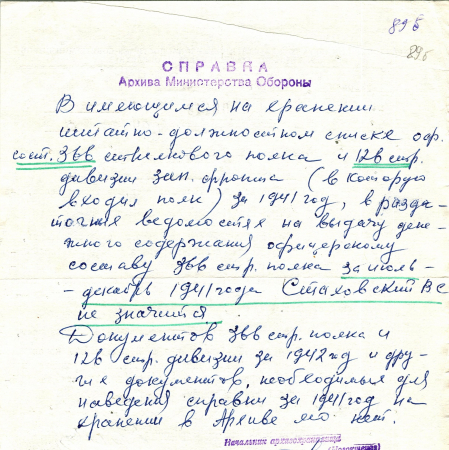 89б
29б
СПРАВКА
Архива Министерства Обороны
В имеющимся на хранении
штатно-должностном списке оф.
сост. 366 стрелкового полка и 126 стр.
дивизии Зап. фронта (в которую
входил полк) за 1941 год, в разда-
точных ведомостях на выдачу дене-
жного содержания офицерскому
составу 366 стр. полка за июль-
- декабрь 1941 года Стаховский В С
не значится
Документов 366 стр. полка и
126 стр. дивизии за 1942 год и дру-
гих документов, необходимых для
наведения справки за 1941 год на
хранении в Архиве МО нет.
Начальник архивохранилища